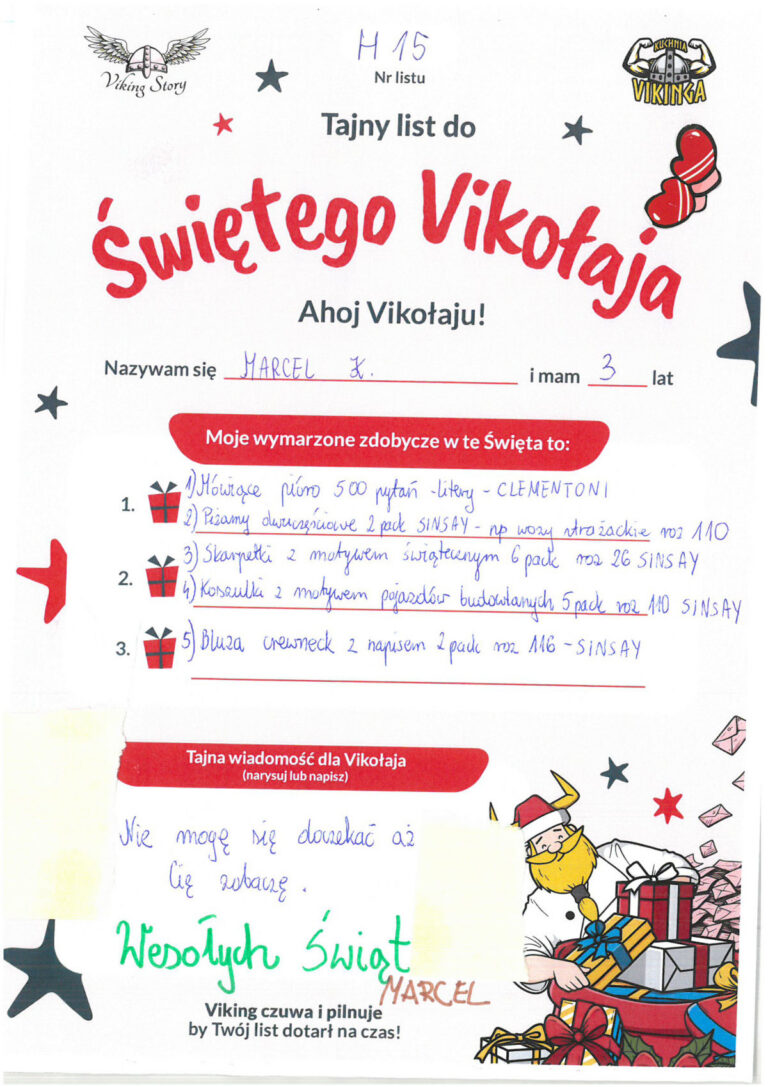 Viking Story
H 15
Nr listu
KUCHNIA
VIKINGA
Tajny list do
Świętego Vikołaja
Ahoj Vikołaju!
Nazywam się MARCEL K. i mam 3 lat
Moje wymarzone zdobycze w te Święta to:
1. 1) Mówiące pióro 500 pytań - litery - CLEMENTONI
2) Piżamy dwuczęściowe 2 pack SINSAY - np wozy strażackie roz 110
2. 3) Skarpetki z motywem świątecznym 6 pack roz 26 SINSAY
4) Koszulki z motywem pojazdów budowlanych 5 pack roz 110 SINSAY
3. 5) Bluza crewneck z napisem 2 pack roz 116 - SINSAY
Tajna wiadomość dla Vikołaja
(narysuj lub napisz)
Nie mogę się doczekać aż
Cię zobaczę.
Wesołych Świąt
MARCEL
Viking czuwa i pilnuje
by Twój list dotarł na czas!